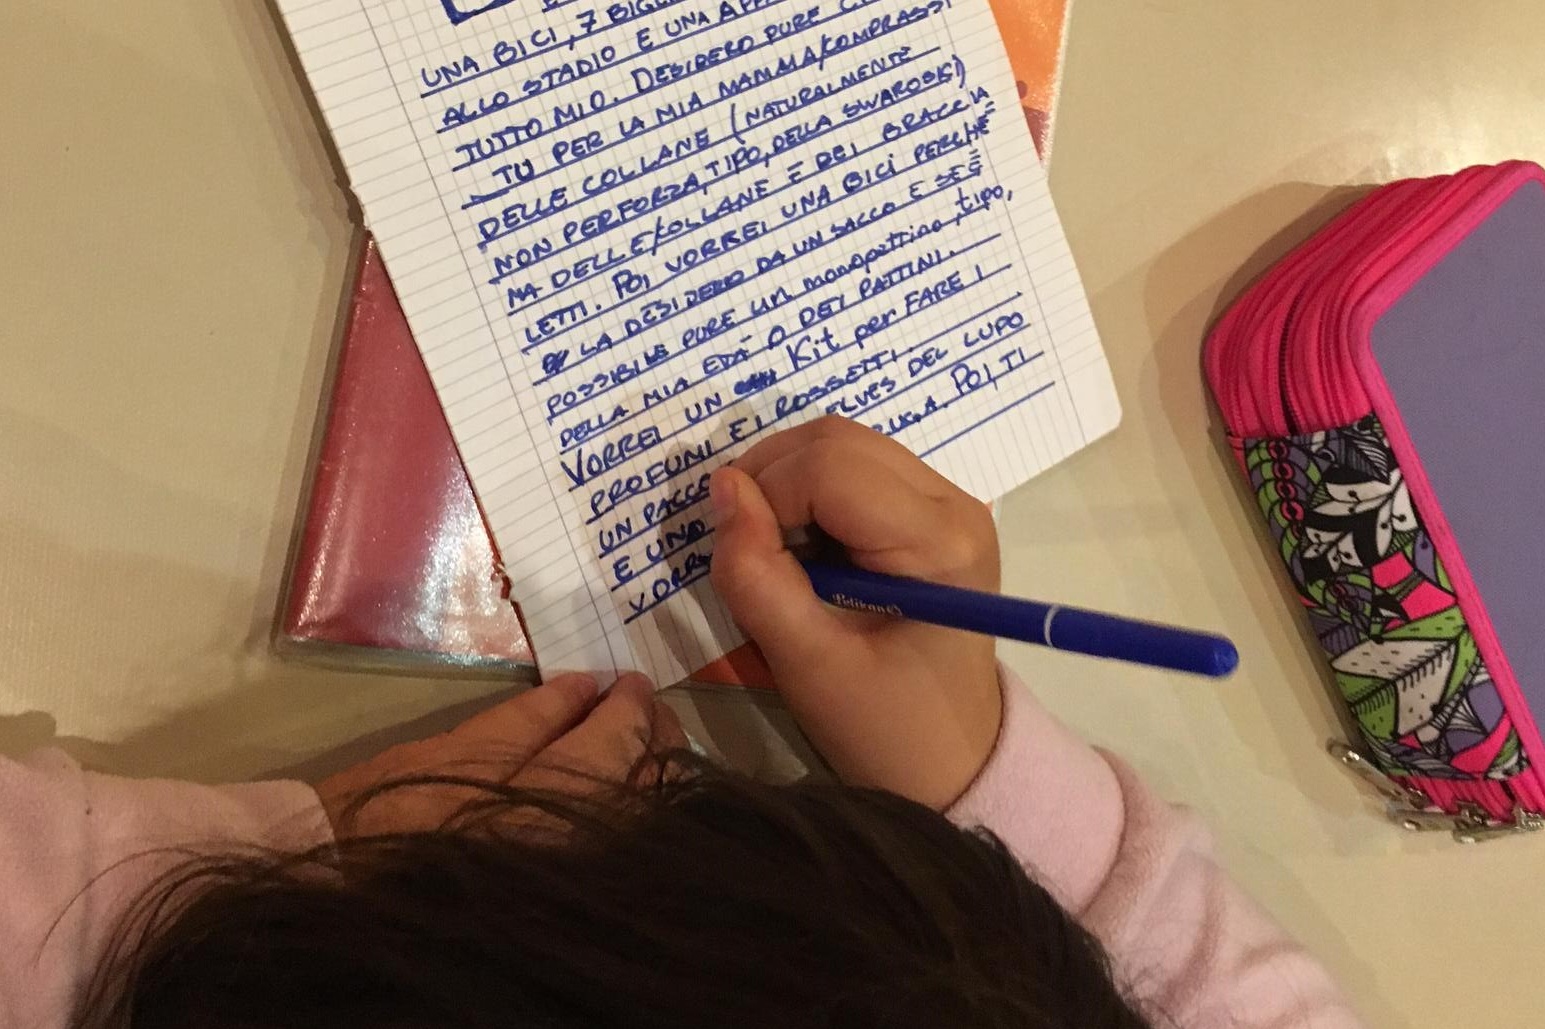 UNA BICI, 7 BIGL
ALLO STADIO E UNA APP
TUTTO MIO. DESIDERO PURE C
TU PER LA MIA MAMMA/COMPRASSI
DELLE COLLANE (NATURALMENTE
NON PERFORZA, TIPO, DELLA SWAROSKI)
MA DELLE/COLLANE E DEI BRACCIA
LETTI. POI VORREI UNA BICI PERCHÉ
LA DESIDERO DA UN SACCO E SE È
POSSIBILE PURE UN monopattino, tipo,
DELLA MIA ETÀ O DEI PATTINI.
VORREI UN Kit per FARE I
PROFUMI E I ROSSETTI.
UN PACCO ELVES DEL LUPO
E UNA POI, TI
VORR
Pelikan